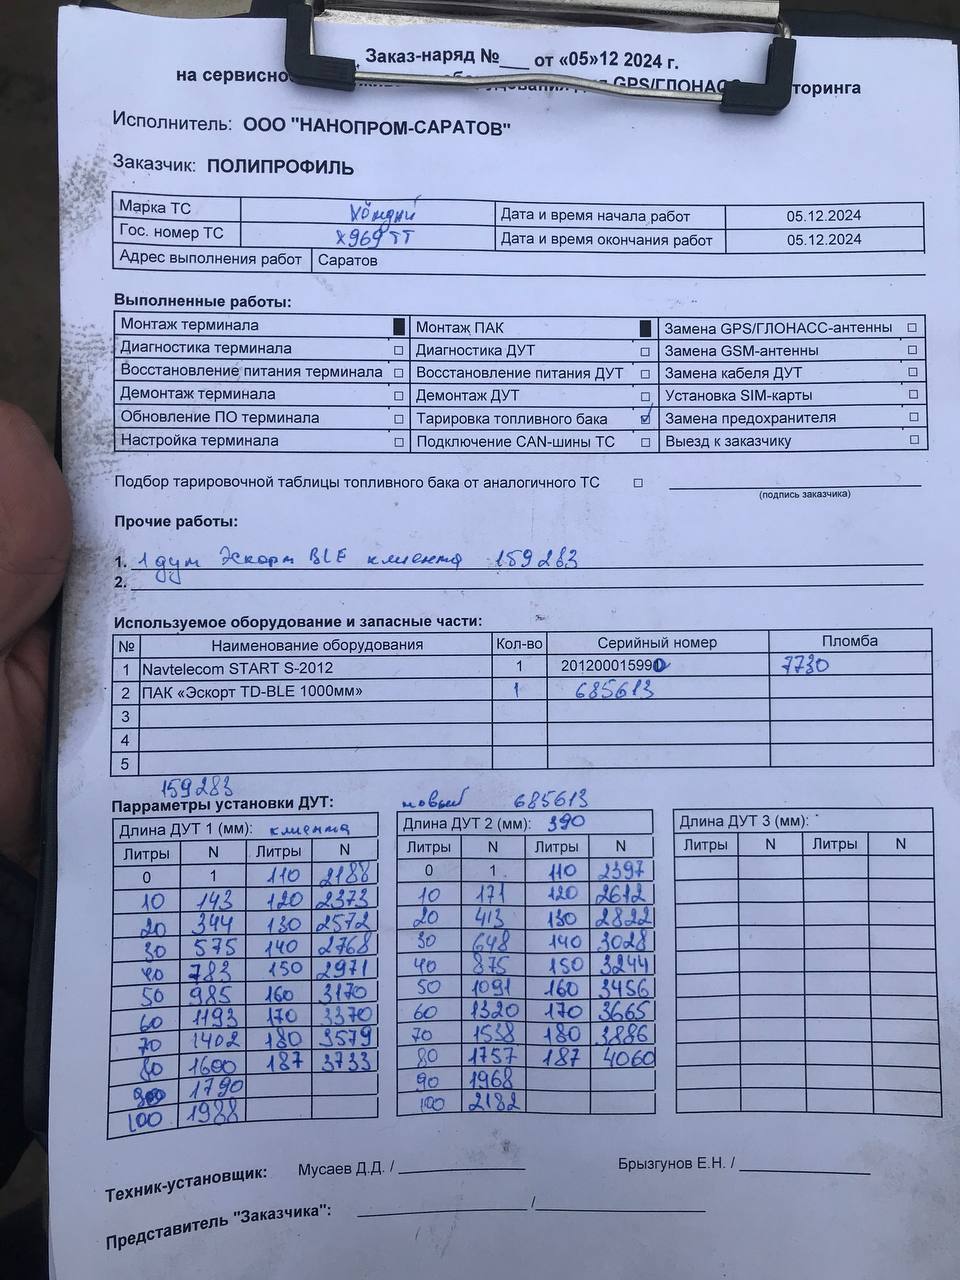 Заказ-наряд №___ от «05»12 2024 г.
на GPS/ГЛОНАСС
Исполнитель: ООО "НАНОПРОМ-САРАТОВ"
Заказчик: ПОЛИПРОФИЛЬ
Марка ТС Хёндай Дата и время начала работ 05.12.2024
Гос. номер ТС х969тт Дата и время окончания работ 05.12.2024
Адрес выполнения работ Саратов
Выполненные работы:
Монтаж терминала ■ Монтаж ПАК ■ Замена GPS/ГЛОНАСС-антенны □
Диагностика терминала □ Диагностика ДУТ □ Замена GSM-антенны □
Восстановление питания терминала □ Восстановление питания ДУТ □ Замена кабеля ДУТ □
Демонтаж терминала □ Демонтаж ДУТ □ Установка SIM-карты □
Обновление ПО терминала □ Тарировка топливного бака ☑ Замена предохранителя □
Настройка терминала □ Подключение CAN-шины ТС □ Выезд к заказчику □
Подбор тарировочной таблицы топливного бака от аналогичного ТС □
(подпись заказчика)
Прочие работы:
1. 1 дут Эскорт BLE клиента 159283
2.
Используемое оборудование и запасные части:
№ Наименование оборудования Кол-во Серийный номер Пломба
1 Navtelecom START S-2012 1 201200015990 7730
2 ПАК «Эскорт TD-BLE 1000мм» 1 685613
3
4
5
159283
Парраметры установки ДУТ: новый 685613
Длина ДУТ 1 (мм): клиента Длина ДУТ 2 (мм): 390 Длина ДУТ 3 (мм):
Литры N Литры N Литры N Литры N Литры N Литры N
0 1 110 2188 0 1 110 2397
10 143 120 2373 10 171 120 2612
20 344 130 2572 20 413 130 2822
30 575 140 2768 30 648 140 3028
40 783 150 2971 40 875 150 3244
50 985 160 3170 50 1091 160 3456
60 1193 170 3370 60 1320 170 3665
70 1402 180 3579 70 1538 180 3886
80 1600 187 3733 80 1757 187 4060
1790 90 1968
100 1988 100 2182
Техник-установщик: Мусаев Д.Д. / Брызгунов Е.Н. /
Представитель "Заказчика": /